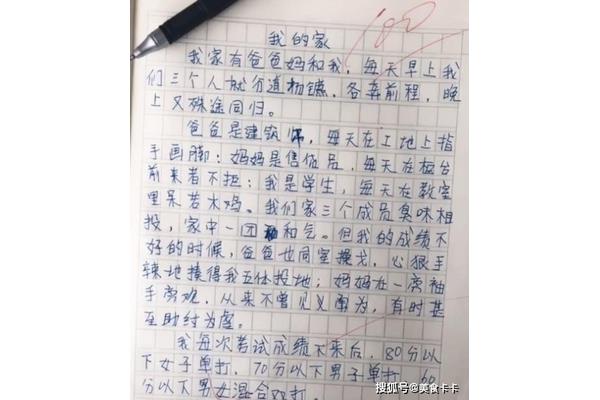 100
我的家
我家有爸爸妈和我，每天早上我
们三个人就分道扬镳，各奔前程，晚
上又殊途同归。
爸爸是建筑师，每天在工地上指
手画脚；妈妈是售货品，每天在柜台
前来者不拒；我是学生，每天在教室
里呆若木鸡。我们家三个成员臭味相
投，家中一团和气。但我的成绩不
好的时候，爸爸也同室操戈，心狠手
辣地揍得我五体投地；妈妈在一旁袖
手旁观，从来不曾见义勇为，有时甚
至助纣为虐。
我每次考试成绩下来后，80分以
下女子单打，70分以下男子单打，60
分以下男女混合双打。
搜狐号@美食卡卡